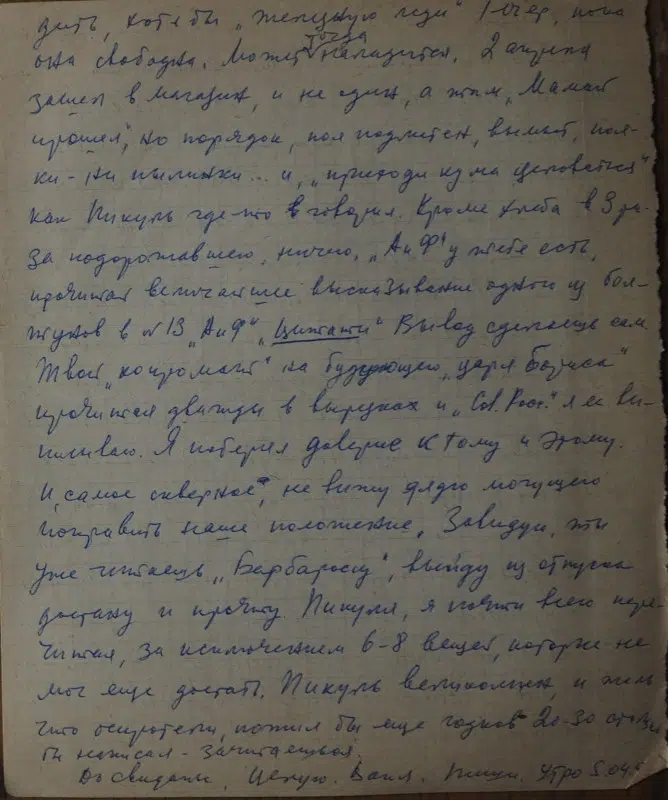 дить, хотя бы "железную леди" Тэтчер, пока
она свободна. Может тогда наладится. 2 апреля
зашел в магазин, и не один, а там "Мамай
прошел", но порядок, пол подметен, вымыт, пол-
ки - ни пылинки... и, "приходи кума целоваться"
как Пикуль где-то говорил. Кроме хлеба в 3 ра-
за подорожавшего, ничего. "АиФ" у тебя есть,
прочитай величайшее высказывание одного из бол-
тунов в №13 "АиФ" "Цитаты" Вывод сделаешь сам
Твой "компромат" на будующего "царя Бориса"
прочитал дважды в вырезках и "Сов. Рос." я ее вы-
писываю. Я потерял доверие к тому и этому.
И, самое скверное, не вижу дядю могущего
поправить наше положение. Завидую, ты
уже читаешь "Барбароссу", выйду из отпуска
достану и прочту. Пикуля, я почти всего пере-
читал, за исключением 6-8 вещей, которые не
мог еще достать. Пикуль великолепен, и жаль
что осиротели, пожил бы еще годков 20-30
бы написал - зачитаешься.
До свидания. Целую. Пиши. Утро 5.04.